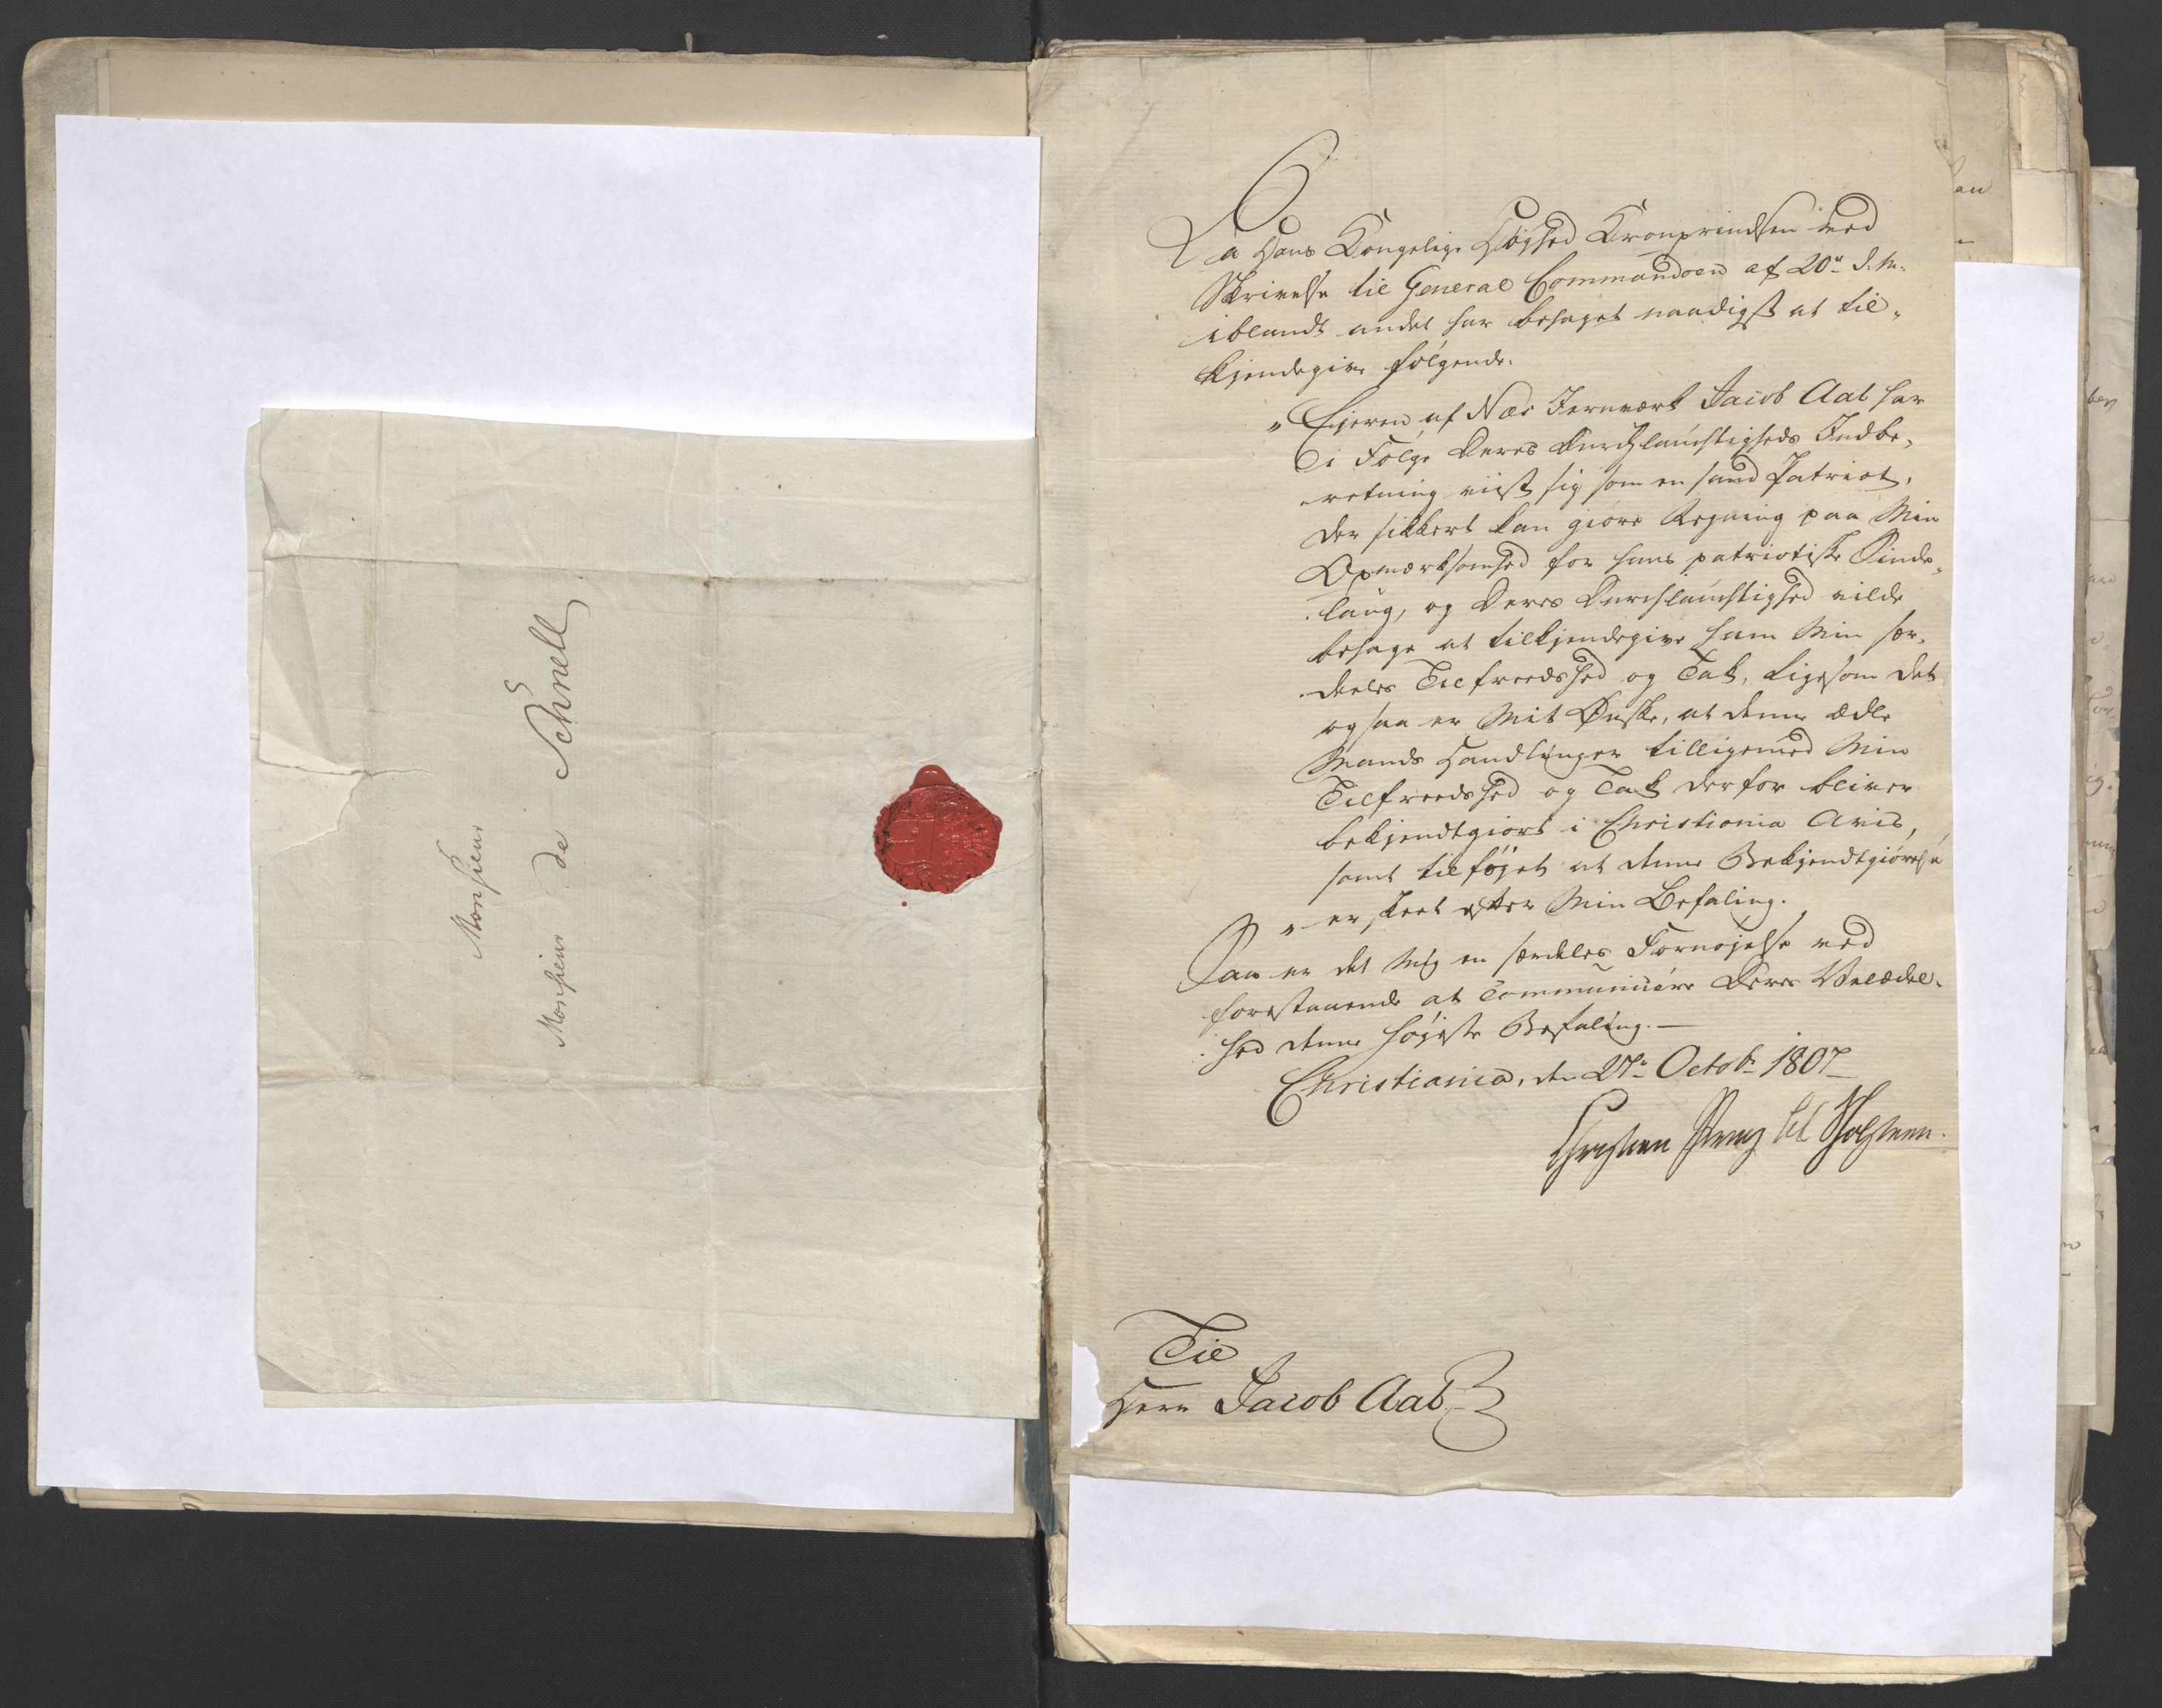 Monsieur
Monsieur de Schnell
Da Hans Kongelige Høyhed Kronprindsen ved
Skrivelse til General Commandoen af 20de d. M.
iblandt andet har behaget naadigst at til-
kjendegive følgende.
"Ejeren af Næs Jernværk Jacob Aal har
i Følge Deres Durchlauchtigheds Indbe-
retning viist sig som en sand Patriot,
der sikkert kan giøre Regning paa Min
Opmærksomhed for hans patriotiske Sinde-
laug, og Deres Durchlauchtighed vilde
behage at tilkjendegive ham Min sær-
deeles Tilfredshed og Tak, ligesom det
ogsaa er Mit Ønske, at denne ædle
Mands Handlinger tilligemed Min
Tilfredshed og Tak derfor bliver
bekjendtgiort i Christiania Avis,
samt tilføjet at denne Bekjendtgiørelse
" er skeet efter Min Befaling.
Saa er det Mig en særdeles Fornøjelse ved
forestaaende at Communicere Deres Velædel-
hed denne høyeste Befaling.—
Christiania, den 27de Octobr 1807
Christian Prinz til Holsteen.
Til
Herr Jacob Aal